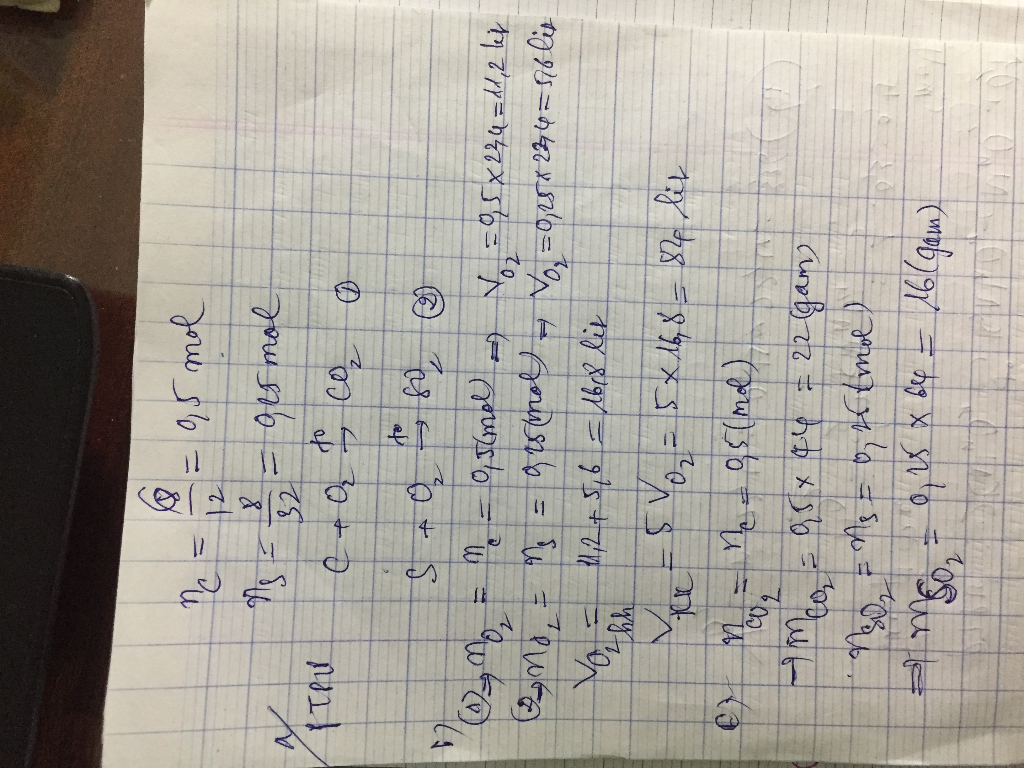 n_C = 6/12 = 0,5 mol
n_S = 8/32 = 0,25 mol
a/ PTPƯ C + O₂ →(t°) CO₂ ①
S + O₂ →(t°) SO₂ ②
b) (1) → n_O₂ = n_C = 0,5 (mol) ⇒ V_O₂ = 0,5 × 22,4 = 11,2 lit
(2) → n_O₂ = n_S = 0,25 (mol) ⇒ V_O₂ = 0,25 × 22,4 = 5,6 lit
V_O₂ hh = 11,2 + 5,6 = 16,8 lit
V_KK = 5 V_O₂ = 5 × 16,8 = 84 lit
c) n_CO₂ = n_C = 0,5 (mol)
→ m_CO₂ = 0,5 × 44 = 22 (gam)
n_SO₂ = n_S = 0,25 (mol)
⇒ m_SO₂ = 0,25 × 64 = 16 (gam)